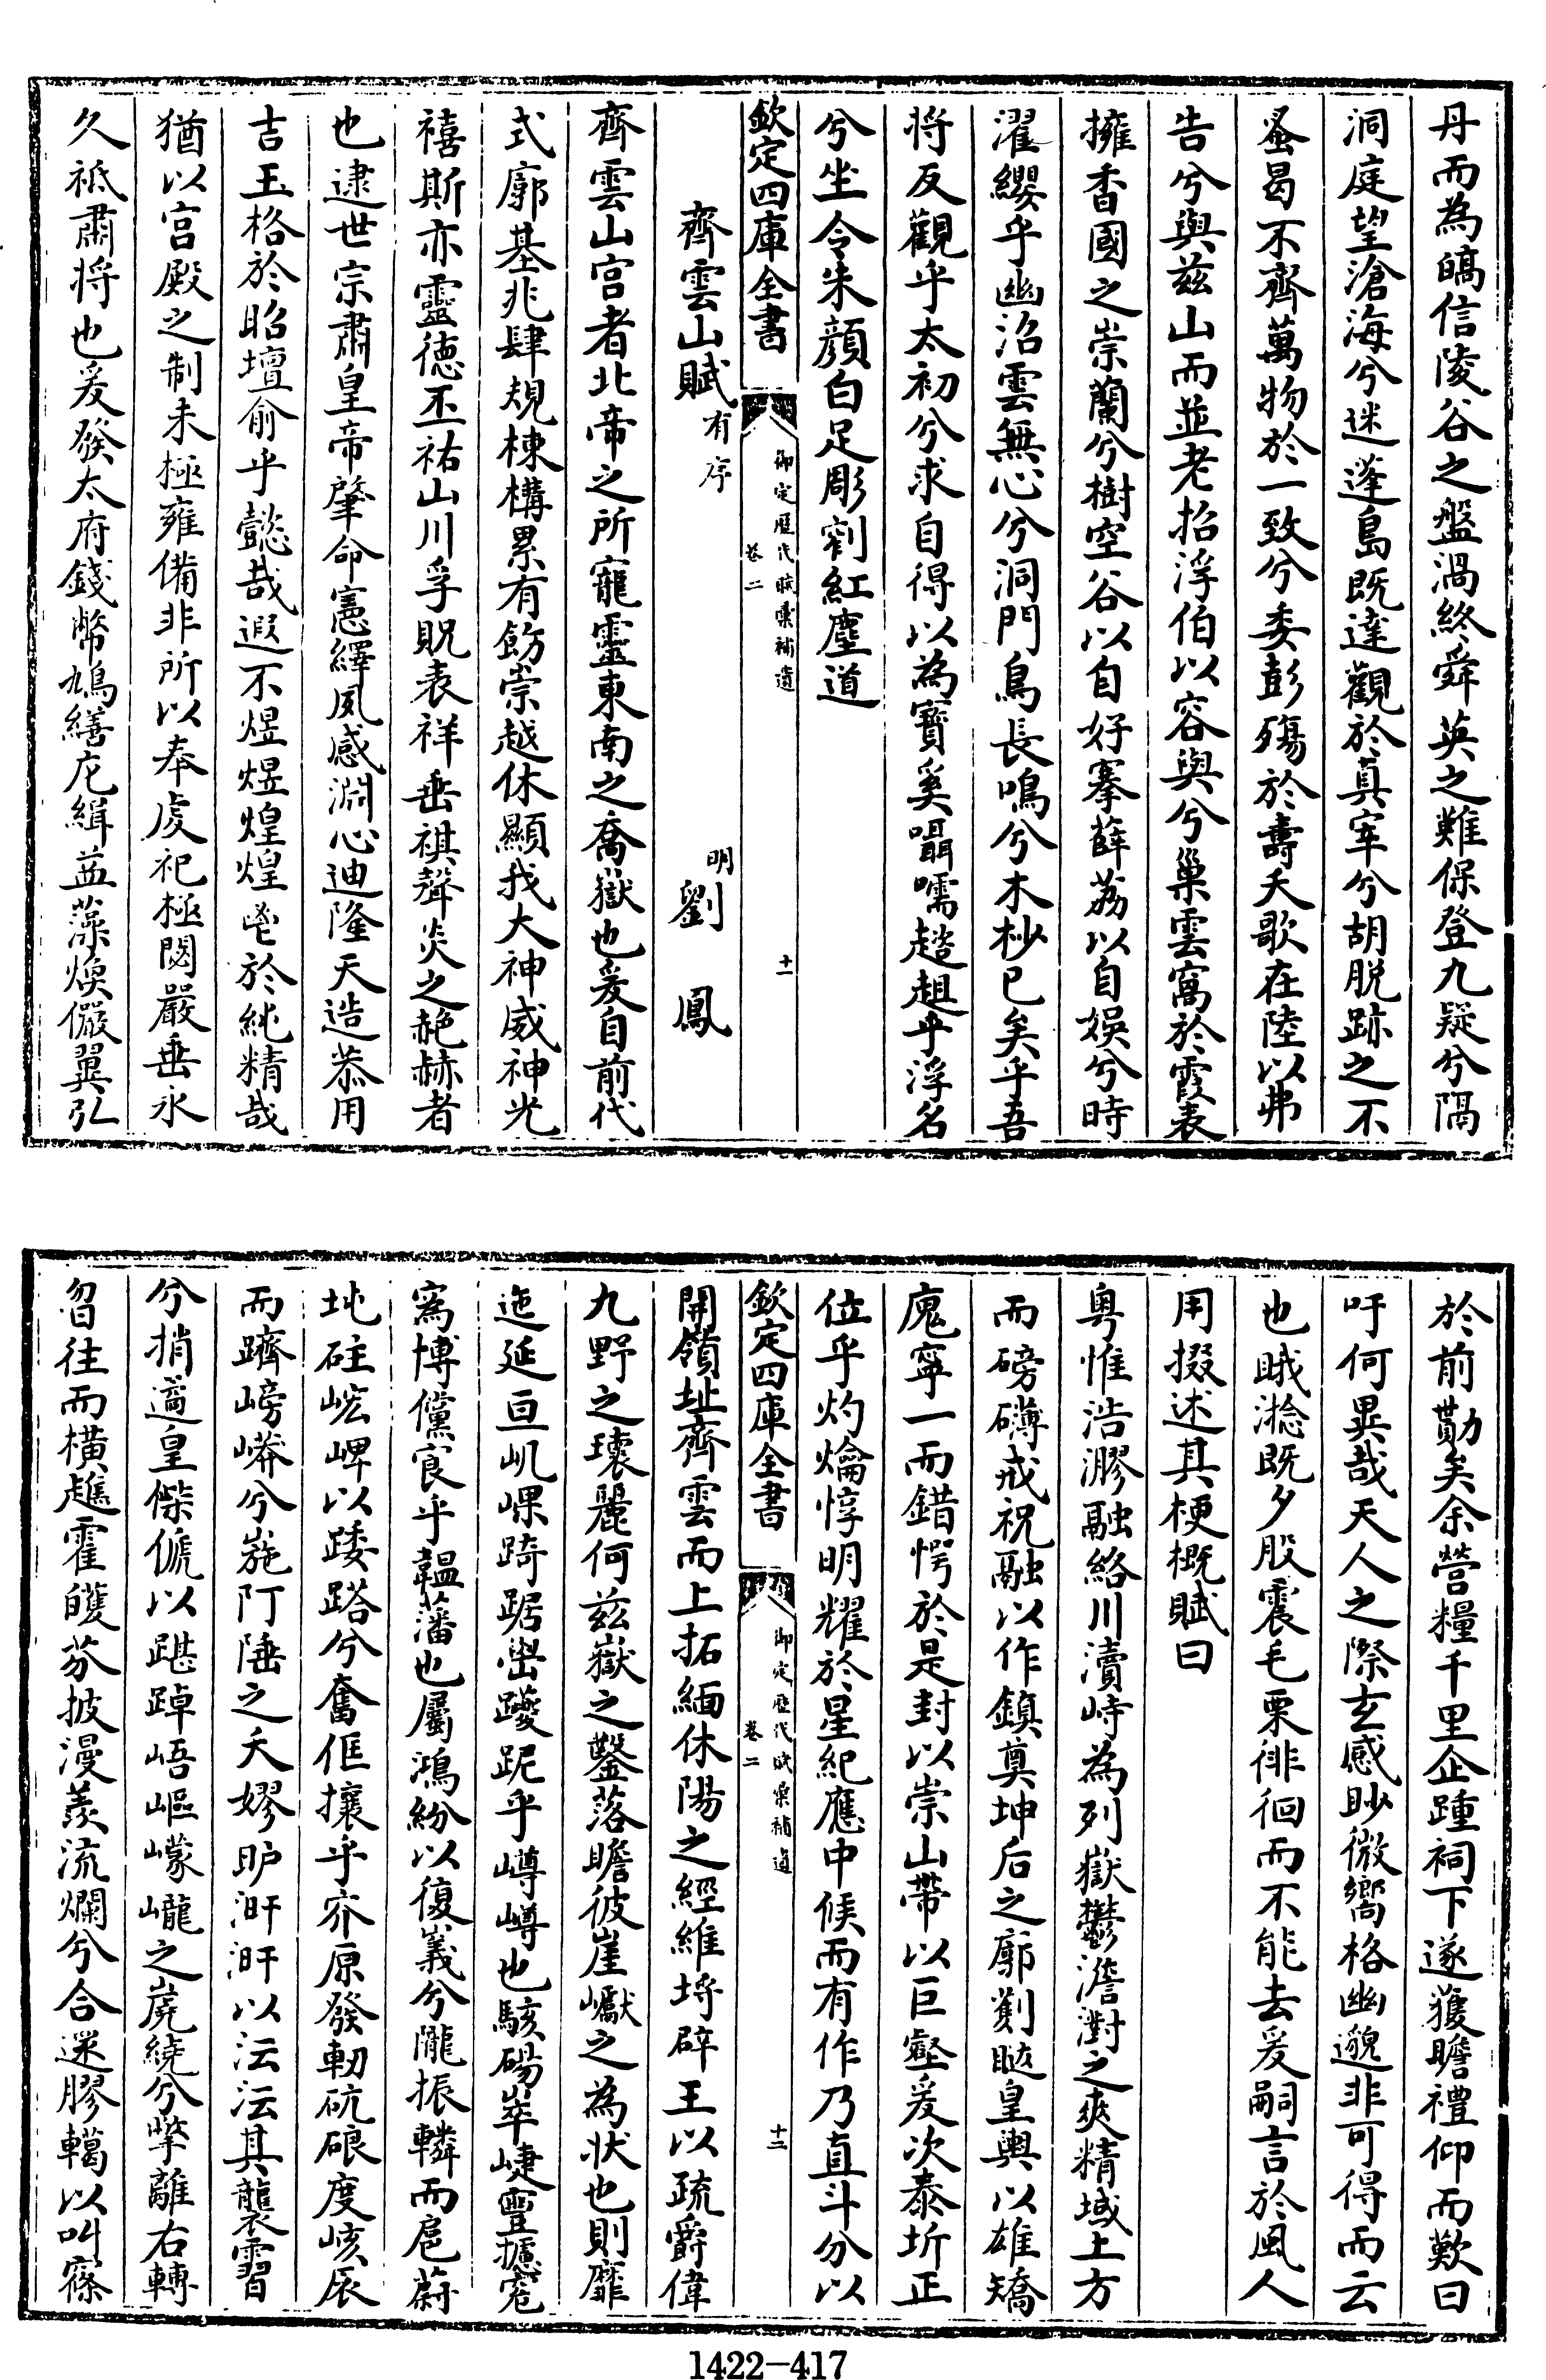 丹而為皜信陵谷之盤渦終舜英之難保登九疑兮隔
洞庭望滄海兮迷蓬島既達觀於真宰兮胡脱跡之不
蚤曷不齊萬物於一致兮委彭殤於壽夭歌在陸以弗
告兮與兹山而並老招浮伯以容與兮巢雲窩於霞表
擁香國之崇蘭兮樹空谷以自好搴薜荔以自娱兮時
濯纓乎幽沼雲無心兮洞門鳥長鳴兮木杪已矣乎吾
将反觀乎太初兮求自得以為寶奚囁嚅趦趄乎浮名
兮坐令朱顔白足彫窮紅塵道
欽定四庫全書
御定歷代賦彙補遺
卷二
十一
齊雲山賦有序
明劉鳳
齊雲山宫者北帝之所寵靈東南之喬嶽也爰自前代
式廓基兆肆規棟構累有飭崇越休顯我大神威神光
禧斯亦靈德丕祐山川孚貺表祥垂祺聲炎之赩赫者
也逮世宗肅皇帝肇命憲繹夙感淵心迪隆天造恭用
吉玉格於昭壇俞乎懿哉遐不煜煜煌煌鬯於純精哉
猶以宫殿之制未極雍備非所以奉虔祀極閟嚴垂永
久祗肅将也爰發太府錢幣鳩繕庀緝並藻煥儼翼弘
於前勩矣余營糧千里企踵祠下遂獲瞻禮仰而歎曰
吁何異哉天人之際玄感眇微嚮格幽邈非可得而云
也眡淰既夕股震毛栗徘徊而不能去爰嗣言於風人
用掇述其梗概賦曰
粤惟浩漻融絡川瀆峙為列嶽鬱澹澍之爽精域土方
而磅礴戒祝融以作鎮奠坤后之廓剗眩皇輿以雄矯
䰟寜一而錯愕於是封以崇山帶以巨壑爰次泰圻正
位乎灼爚惇明耀於星紀應中候而有作乃直斗分以
欽定四庫全書
御定歷代賦彙補遺
卷二
十二
開嶺址齊雲而上拓緬休陽之經維埒辟王以疏爵偉
九野之瓌麗何兹嶽之鑿落瞻彼崖巘之為狀也則靡
迤延亘屼嵲踦踞嶨躨跜乎嶟嶟也駭碭崒崨霻摅窊
窵博儻㝗乎韞藩也屬鴻紛以復嶬兮隴振轔而扈蔚
坉砫峵崥以踒跲兮奮偔攘乎夰原發軔砊硠度峐辰
而躋嵭嶙兮崺阞陲之夭嫪昈汧汧以沄沄其襲霫
兮捎遹皇傑傂以踸踔峿嶇㠓巃之嶤繞兮㧖離右轉
曶往而横趭霍皬芬披漫羨流爛兮合遝膠轕以叫寥
1422-417